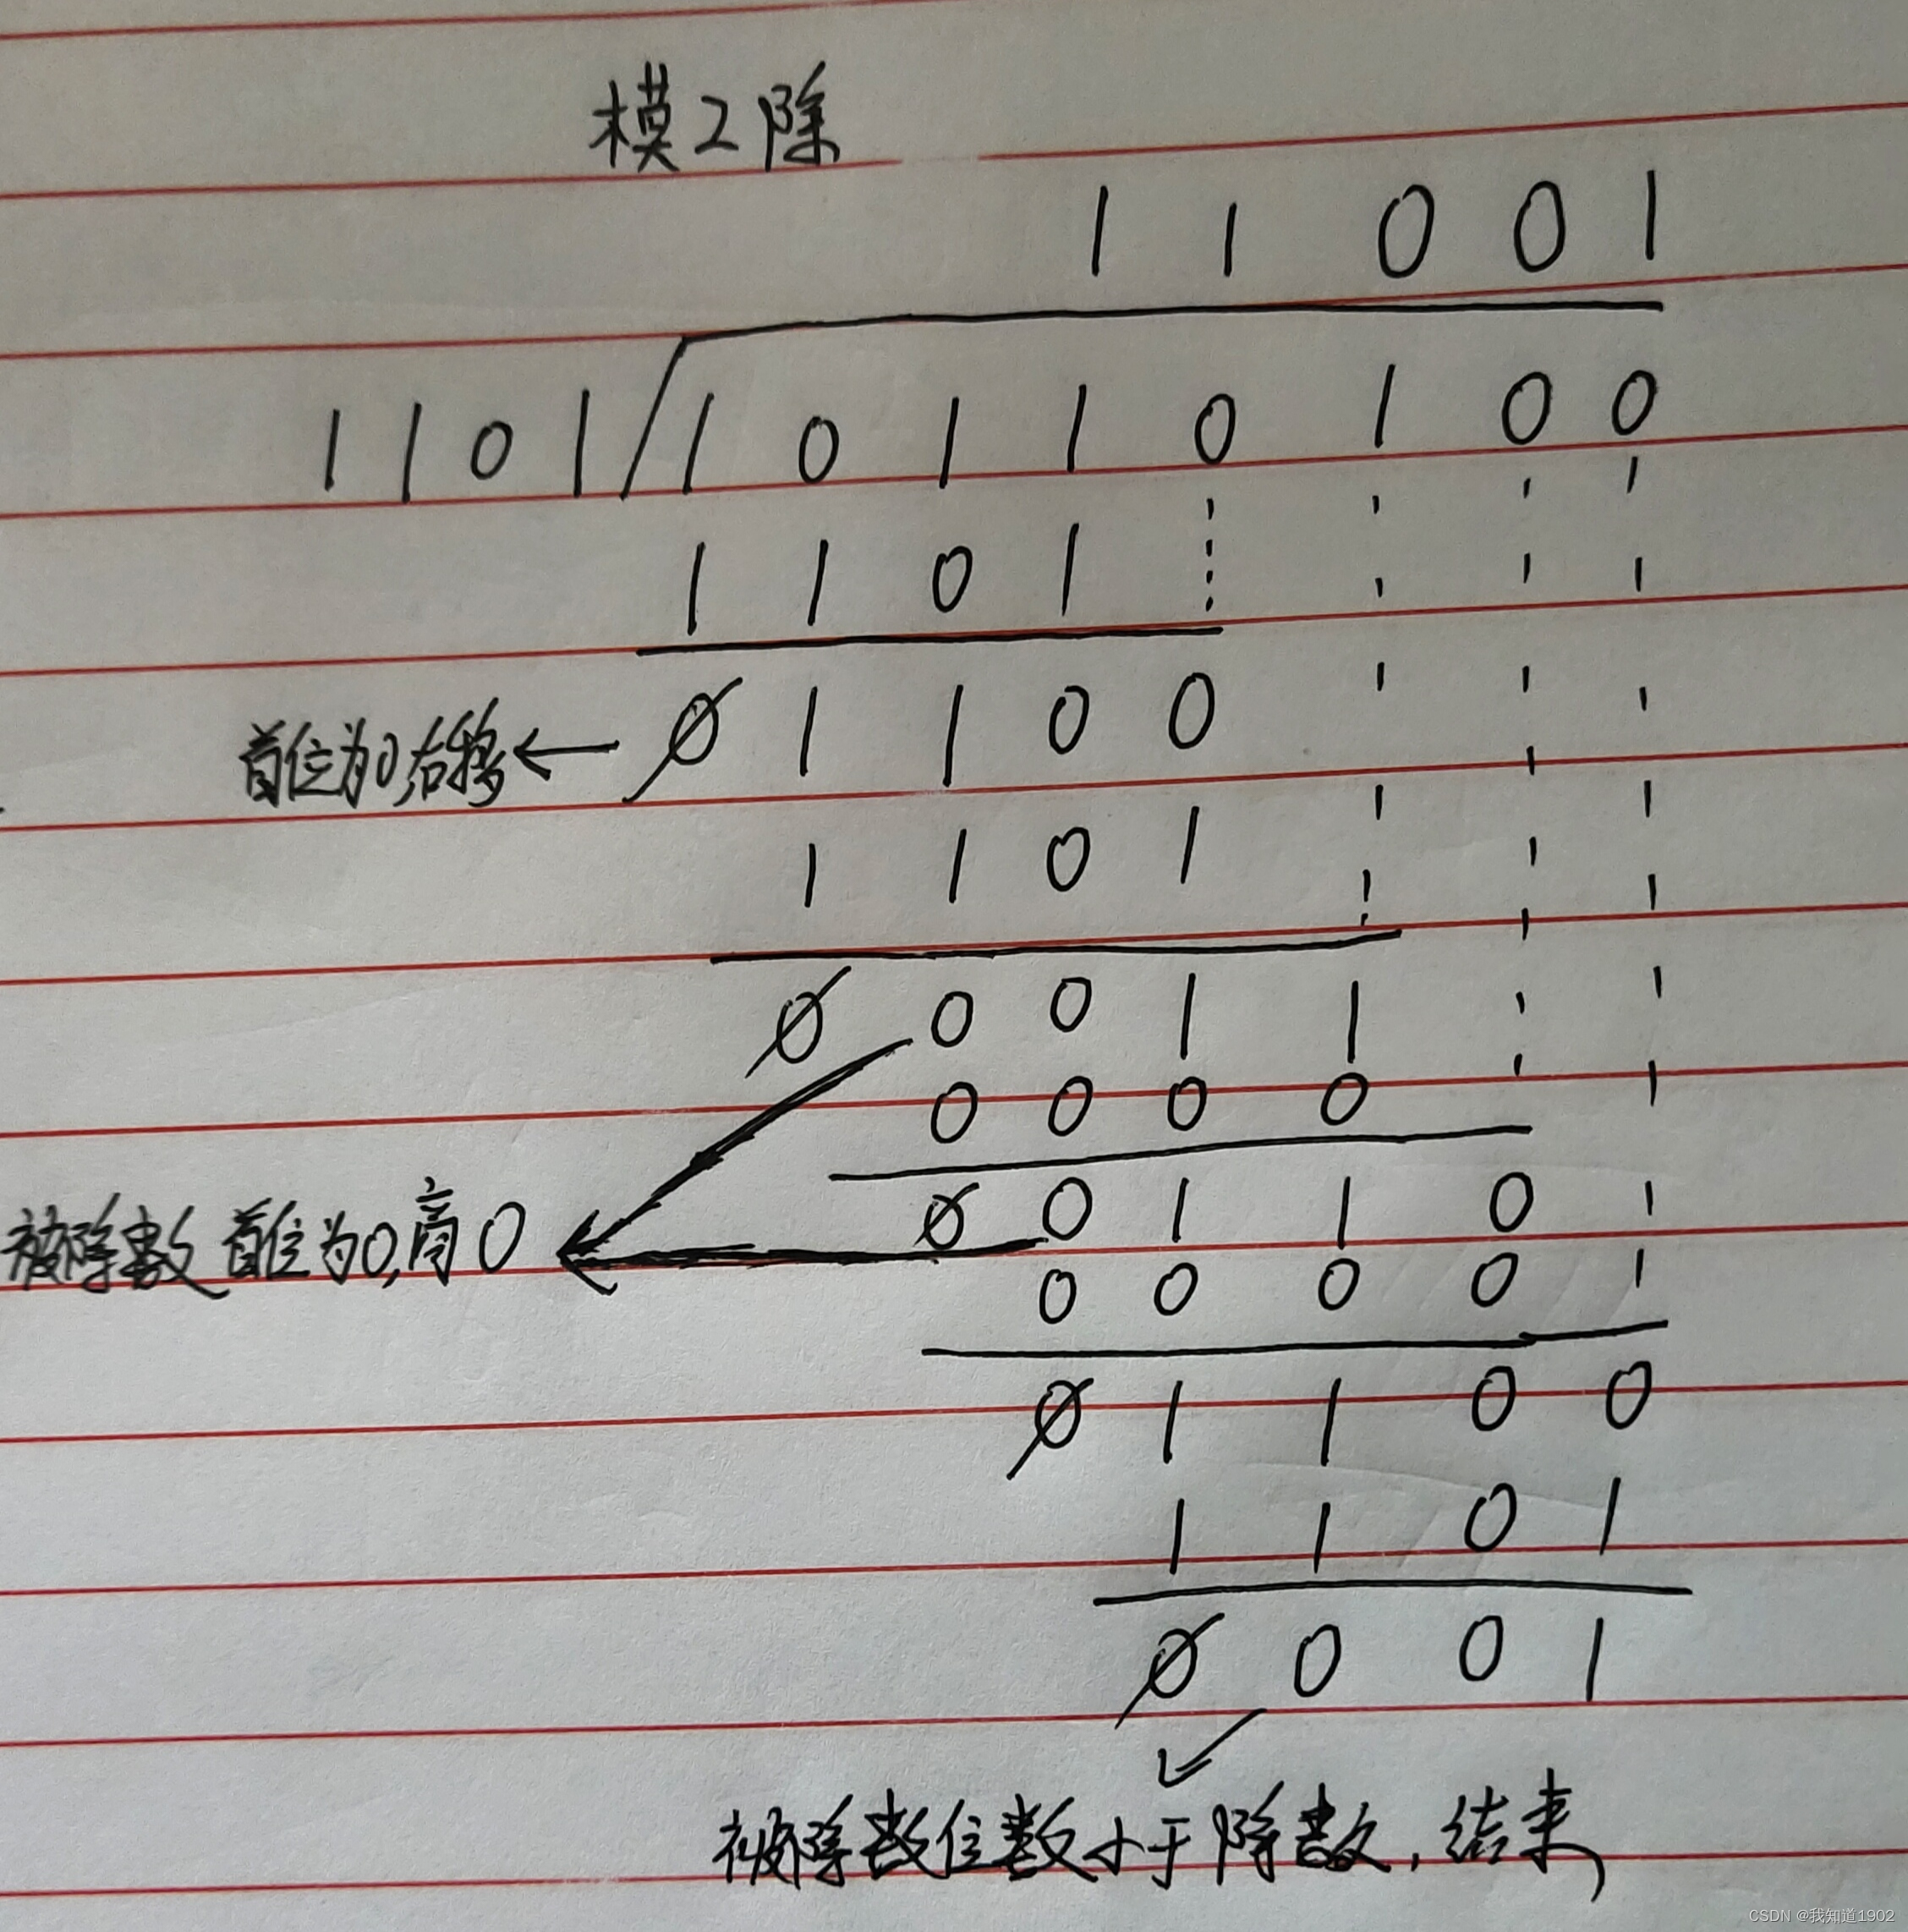 模2除
1 1 0 0 1
1 1 0 1 / 1 0 1 1 0 1 0 0
1 1 0 1
首位为0,右移 ← 0 1 1 0 0
1 1 0 1
0 0 0 1 1
0 0 0 0
被除数首位为0,商0
0 0 1 1 0
0 0 0 0
0 1 1 0 0
1 1 0 1
0 0 0 1
被除数位数小于除数,结束
CSDN @我知道1902